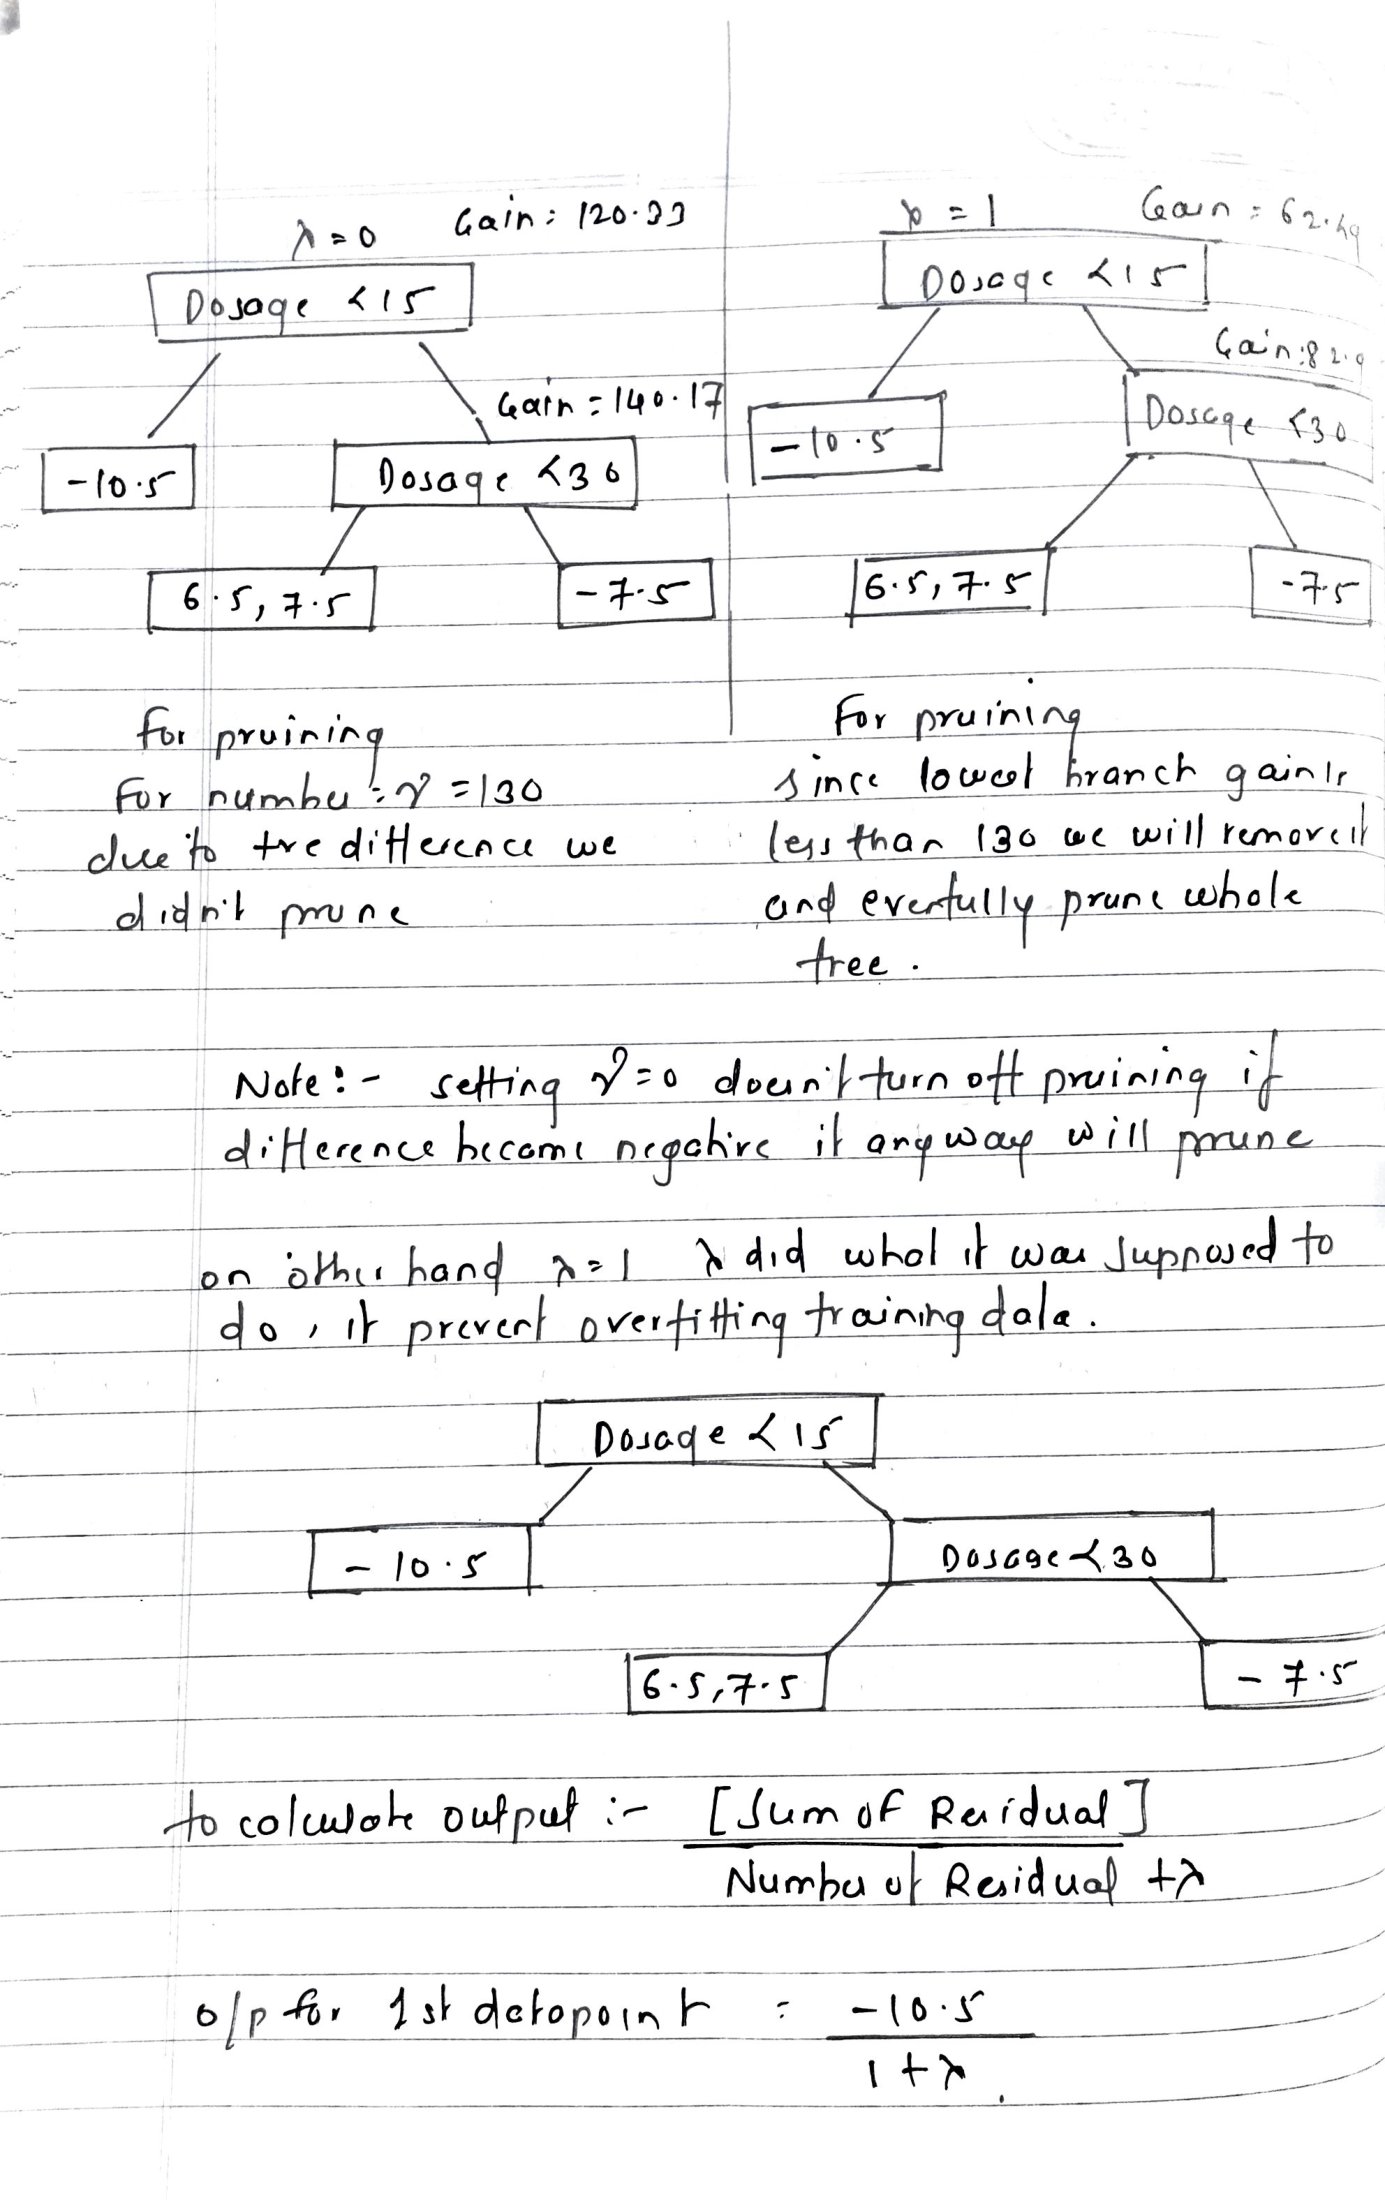 λ=0 Gain: 120.33
Dosage <15
Gain = 140.17
-10.5
Dosage <30
6.5, 7.5
-7.5
λ = 1 Gain = 62.49
Dosage <15
Gain: 82.9
-10.5
Dosage <30
6.5, 7.5
-7.5
for pruining
For number: γ =130
due to +ve difference we
didn't prune
For pruining
since lowest branch gain is
less than 130 we will remove it
and evenfully prune whole
tree.
Note:- setting γ=0 doesn't turn off pruining if
difference become negative it anyway will prune
on other hand λ=1 λ did what it was supposed to
do, it prevent overfitting training data.
Dosage <15
-10.5
Dosage <30
6.5,7.5
-7.5
to calculate output :- [Sum of Residual]
Number of Residual +λ
o/p for 1st datapoint = -10.5
1+λ.